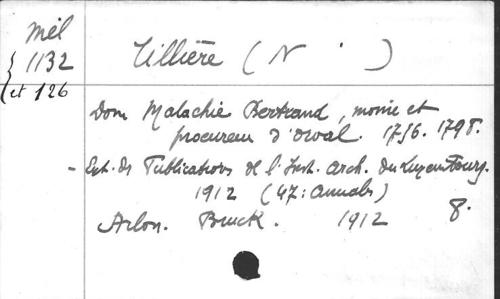 Mél
1132
et 126
Tillière (N . )
Dom Malachie Bertrand, moine et
procureur d'Orval. 1756. 1798.
- Ext. ds Publications de l'Inst. arch. du Luxembourg.
1912 (47: Annales)
Arlon. Bruck. 1912 8.